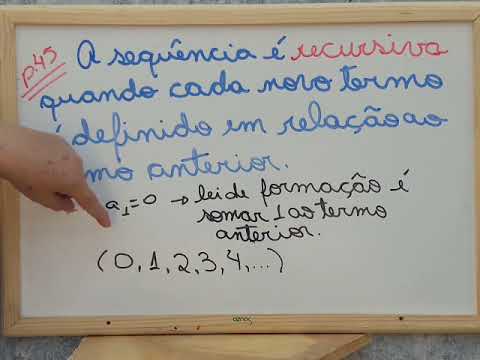 p.45
A sequência é recursiva
quando cada novo termo
é definido em relação ao
mo anterior.
a₁=0 → lei de formação é
somar 1 ao termo
anterior.
(0,1,2,3,4,...)